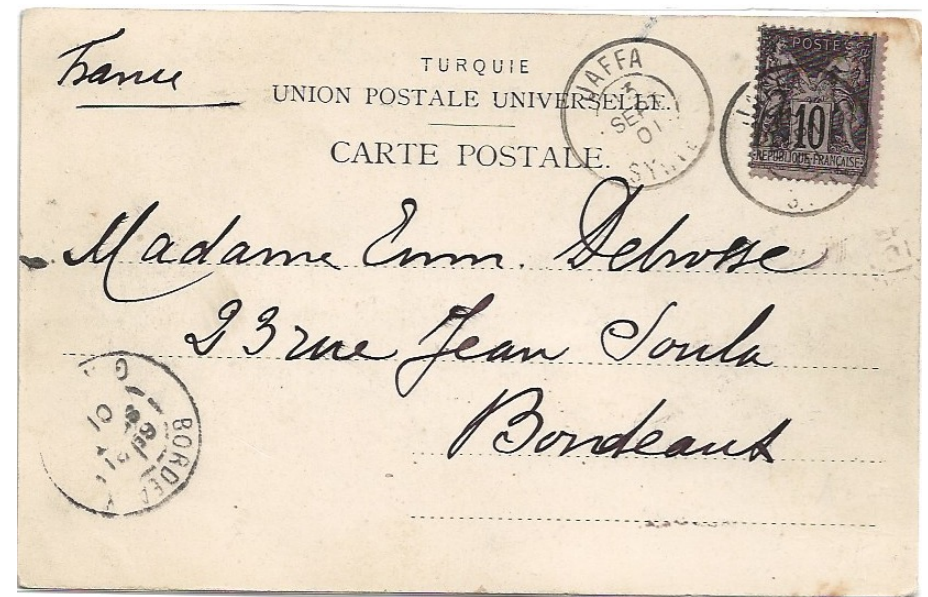 France
TURQUIE
UNION POSTALE UNIVERSELLE.
CARTE POSTALE.
JAFFA
5
SEPT
01
SYRIE
POSTES
10
REPUBLIQUE FRANÇAISE
Madame Emm. Debrosse
23 rue Jean Soula
Bordeaux
BORDEAUX
01